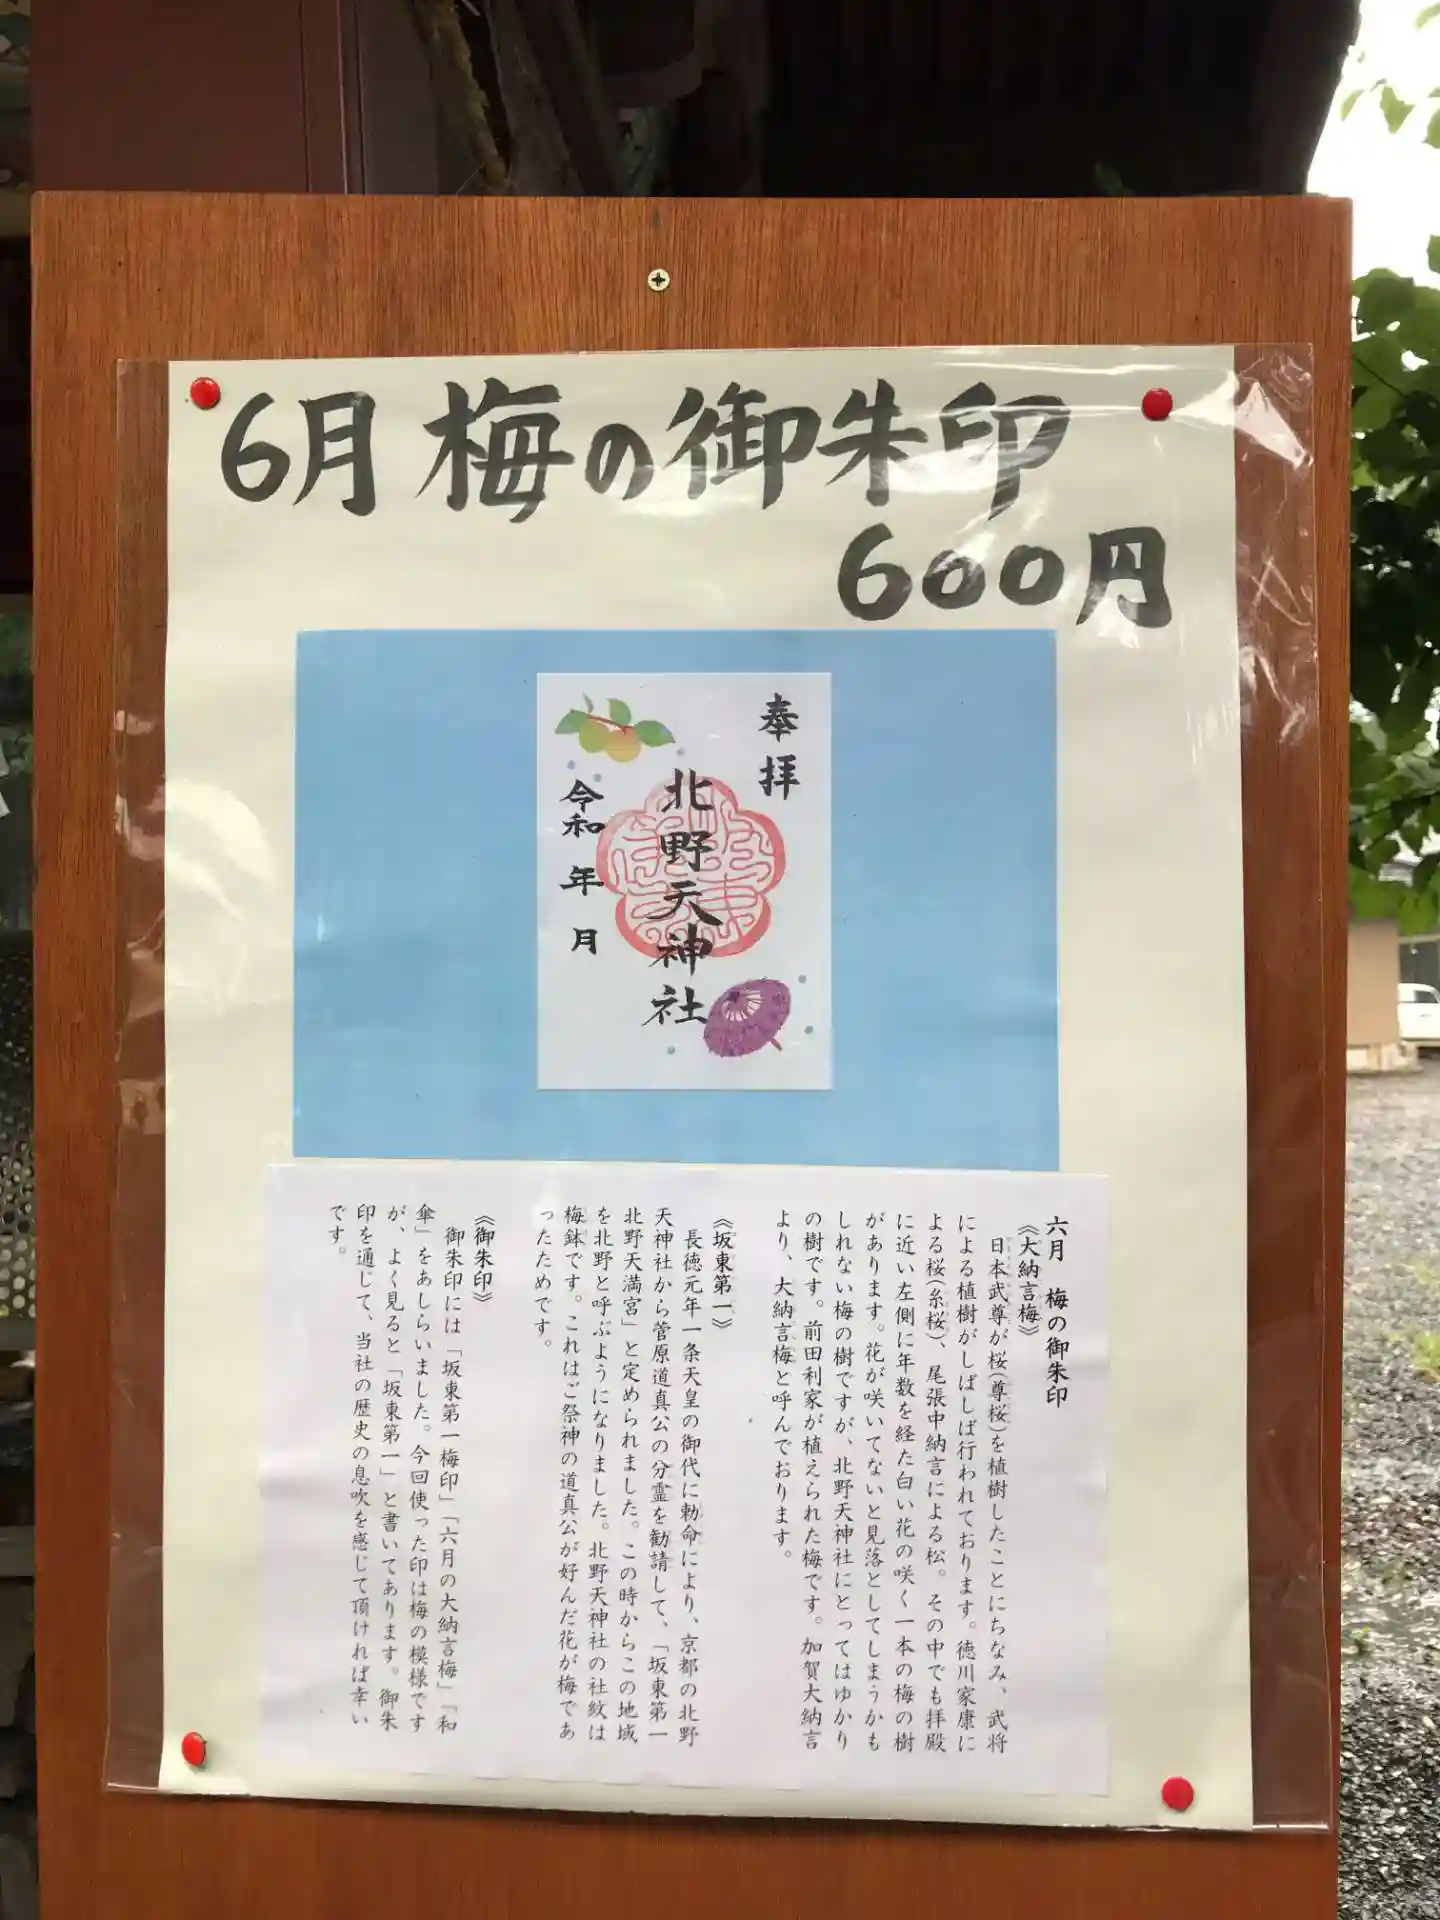 6月 梅の御朱印
600円
奉拝
北野天神社
令和 年 月
六月 梅の御朱印
《大納言梅》
日本武尊が桜(尊桜)を植樹したことにちなみ、武将
による植樹がしばしば行われております。徳川家康に
よる桜(糸桜)、尾張中納言による松。その中でも拝殿
に近い左側に年数を経た白い花の咲く一本の梅の樹
があります。花が咲いてないと見落としてしまうかも
しれない梅の樹ですが、北野天神社にとってはゆかり
の樹です。前田利家が植えられた梅です。加賀大納言
より、大納言梅と呼んでおります。
《坂東第一》
長徳元年一条天皇の御代に勅命により、京都の北野
天神社から菅原道真公の分霊を勧請して、「坂東第一
北野天満宮」と定められました。この時からこの地域
を北野と呼ぶようになりました。北野天神社の社紋は
梅鉢です。これはご祭神の道真公が好んだ花が梅であ
ったためです。
《御朱印》
御朱印には「坂東第一梅印」「六月の大納言梅」「和
傘」をあしらいました。今回使った印は梅の模様です
が、よく見ると「坂東第一」と書いてあります。御朱
印を通じて、当社の歴史の息吹を感じて頂ければ幸い
です。